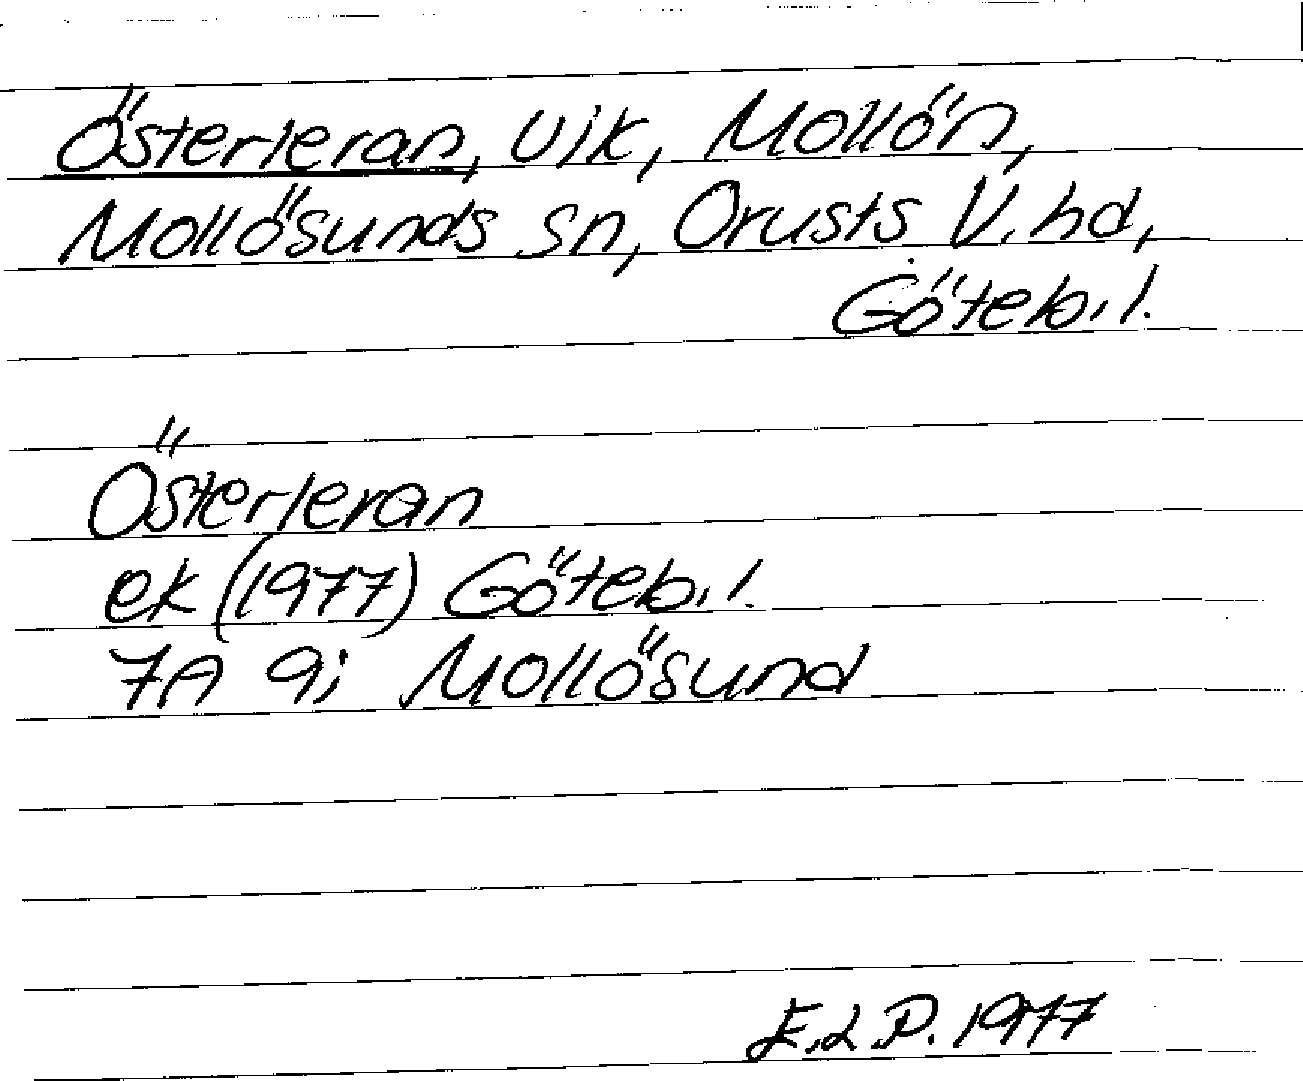 Österleran, vik, Mollön,
Mollösunds sn, Orusts V. hd,
Göteb. l.
Österleran
ek (1977) Göteb. l.
7A 9i Mollösund
E.L.P. 1977